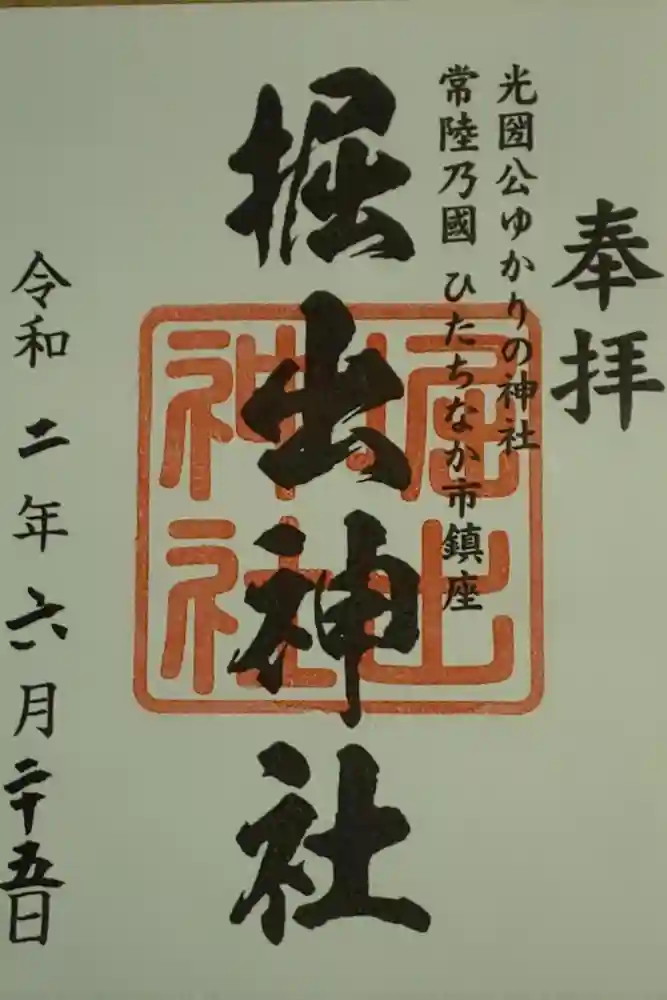 奉拝
光圀公ゆかりの神社
常陸乃國 ひたちなか市鎮座
掘出神社
掘出
神社
令和二年六月二十五日